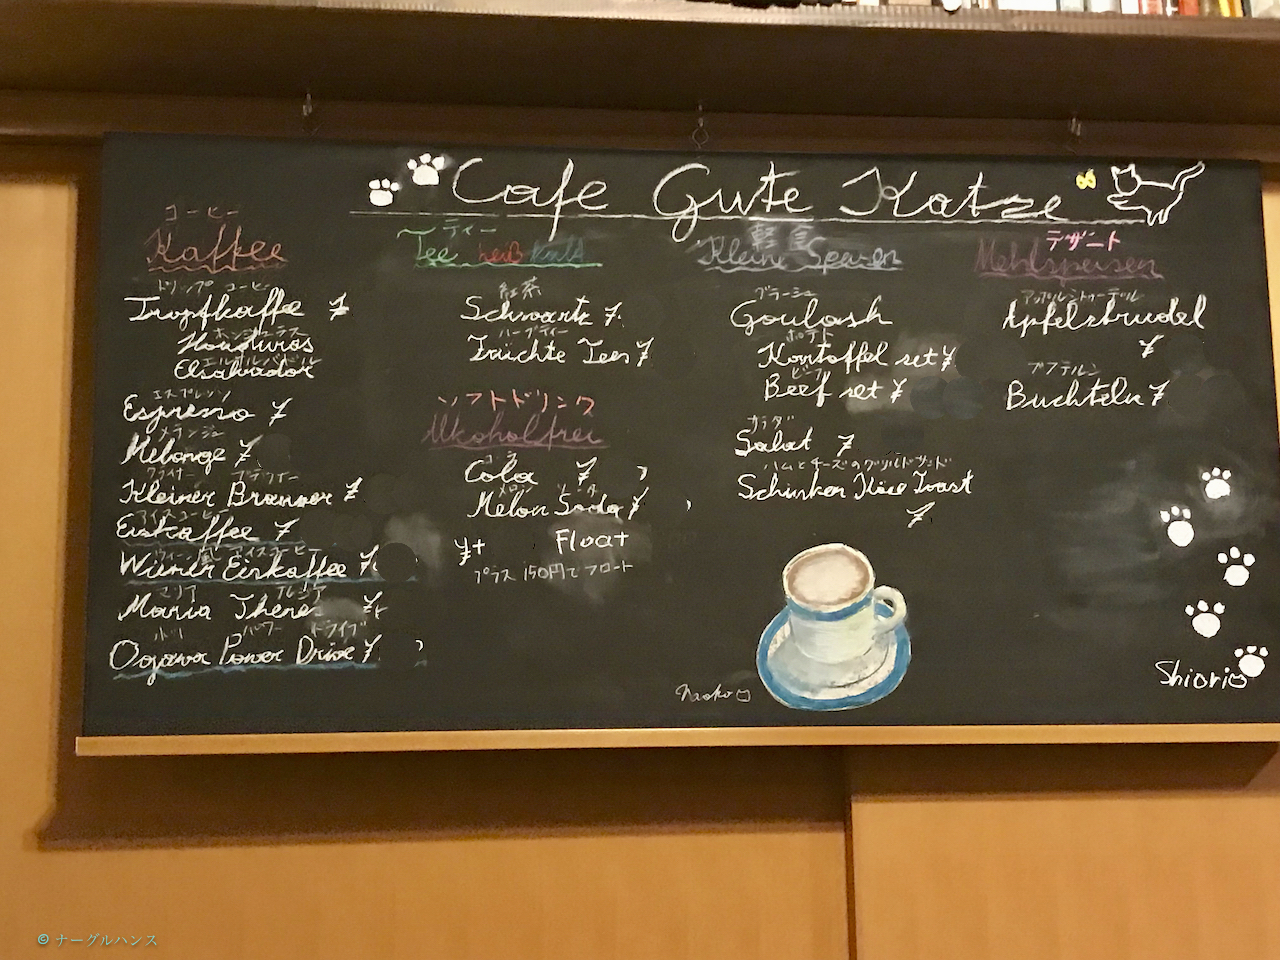 Cafe Gute Katze
コーヒー
Kaffee
ドリップコーヒー
Tropfkaffee ¥
ホンジュラス
Honduras
エルサルバドル
Elsalvador
エスプレッソ
Espresso ¥
メランジェ
Melange ¥
クライナー ブラウナー
Kleiner Brauner ¥
アイスコーヒー
Eiskaffee ¥
ウィーン風 アイスコーヒー
Wiener Eiskaffee ¥
マリア テレジア
Maria There ¥
パワー ドライブ
Ogawa Power Drive ¥
ティー
Tee heiß kalt
紅茶
Schwartz ¥
ハーブティー
Früchte Tees ¥
ソフトドリンク
Alkoholfrei
コーラ
Cola ¥
メロン ソーダ
Melon Soda ¥
¥+ Float
プラス150円でフロート
軽食
Kleine Speisen
グラーシュ
Goulash
ポテト
Kartoffel set ¥
ビーフ
Beef set ¥
サラダ
Salat ¥
ハムとチーズのグリルドサンド
Schinken Käse Toast
¥
デザート
Mehlspeisen
アップルシュトゥルーデル
Apfelstrudel
¥
ブフテルン
Buchteln ¥
Naoko
Shiori
© ナーグルハンス